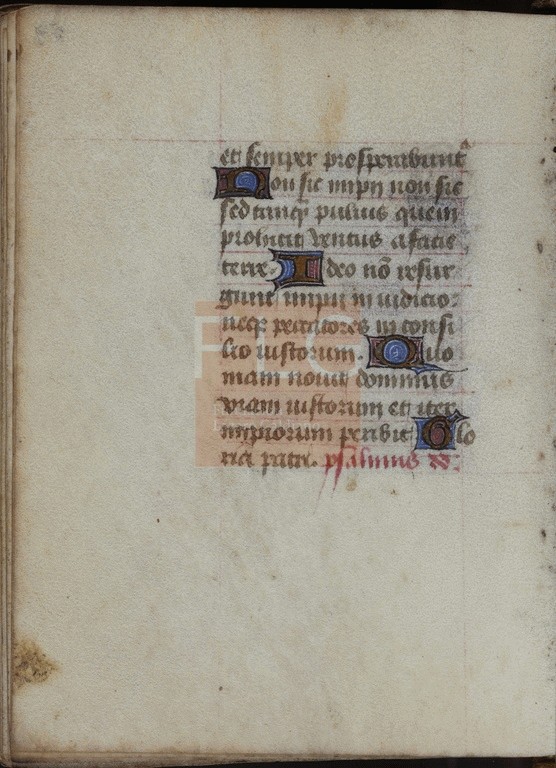 et semper prosperabunt
Non sic impij non sic
sed tanq̄ puluis quem
prohicit ventus a facie
terre. Ideo nō resur
gunt impij in iudicio:
neq̄ peccatores in consi
lio iustorum. Quo
niam nouit dominus
viam iustorum et iter
impiorum peribit Glo
ria patri. psalmus
FLG